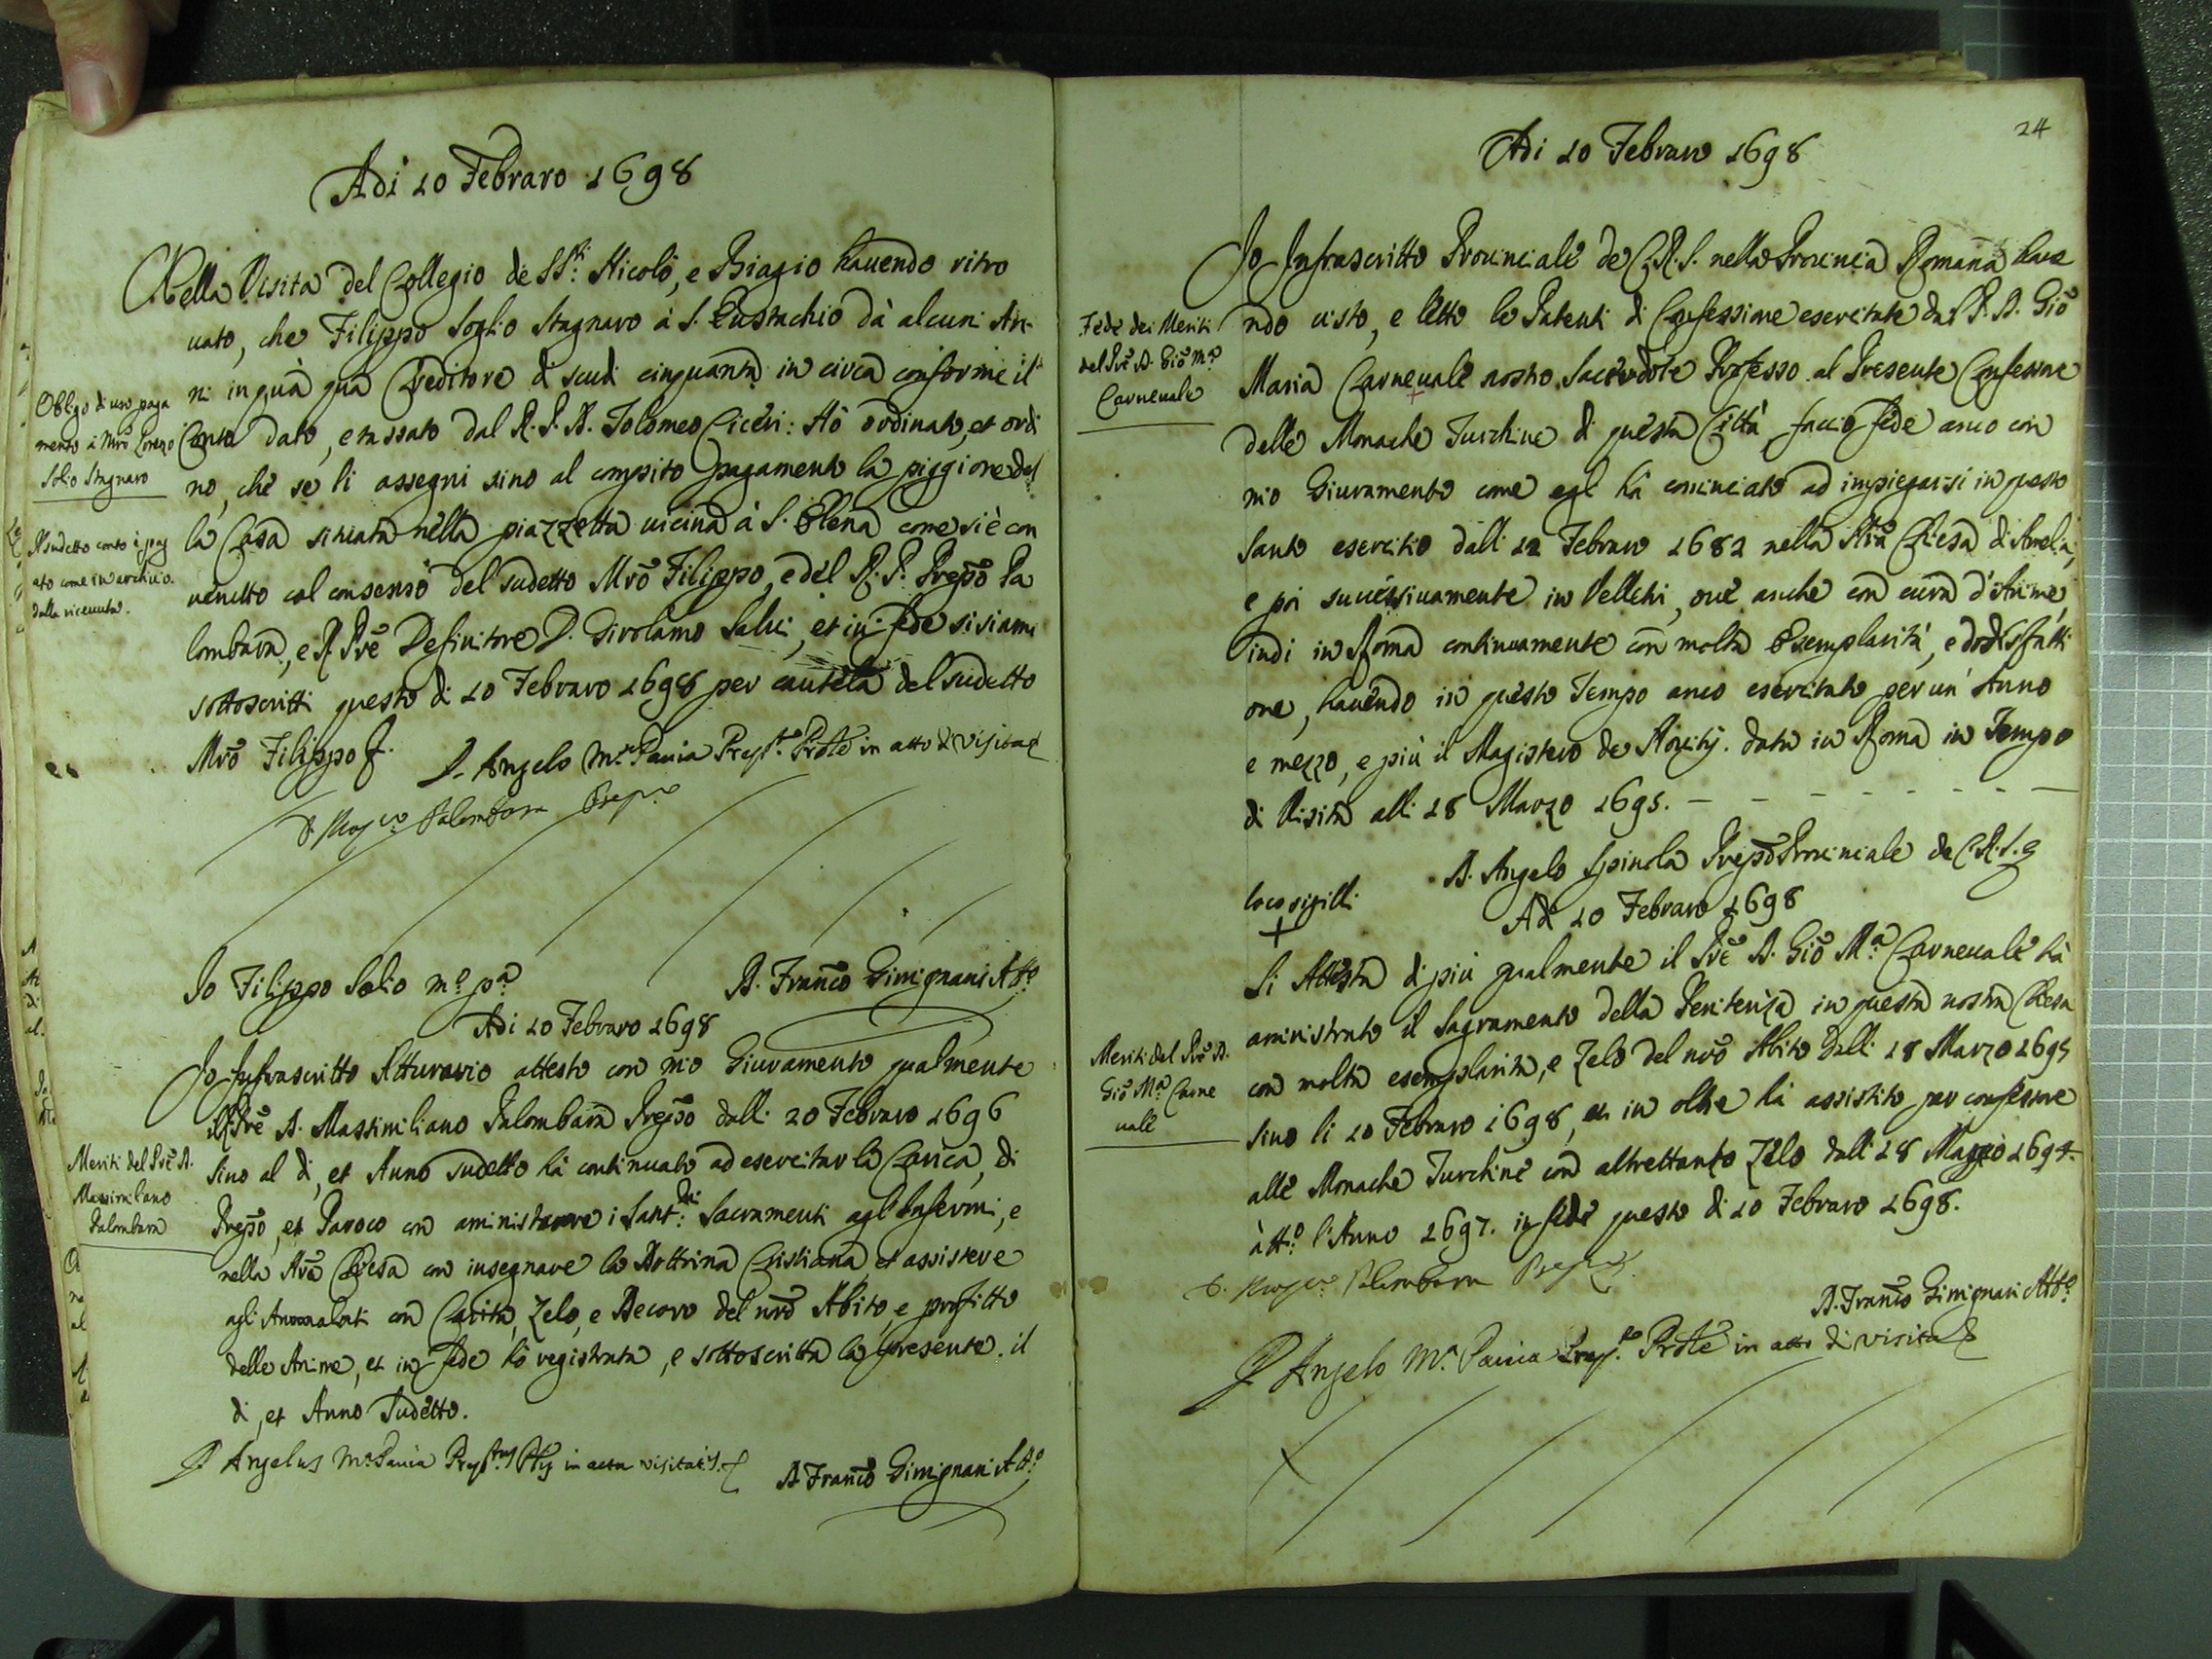 Adi 10 Febraro 1698
Nella Visita del Collegio de SS.ti Nicolò, e Biagio hauendo ritro
uato, che Filippo Soglio Stagnaro à S. Eustachio dà alcuni An-
ni in quà qua Creditore di scudi cinquanta in circa conforme il
Conto dato, e tassato dal R. P. D. Tolomeo Ciceri: Hò ordinato, et ordi
no, che se li assegni sino al compito pagamento la piggione del
la Casa situata nella piazzetta uicina à S. Elena come si è con
uenuto col consenso del sudetto Mrõ Filippo, e del R. P. Prepõ Pa
lombara, e R. Prẽ Definitore D. Girolamo Salui, et in fede si siamo
sottoscritti questo di 10 Febraro 1698 per cautela del sudetto
Mrõ Filippo
D. Angelo M.a Pauia Prep.to Prõle in atto di Visita
Palombara Prep.to
Obligo di uno paga
mento à Mrõ Lorenzo
Solio Stagnaro
Il sudetto conto è pag
ato come in archiuio
dalla riceuuta.
Io Filippo Solio m.o p.a
D. Franco Gimignani Att.o
Adi 10 Febraro 1698
Io Infrascritto Attuario attesto con mio Giuramento qualmente
il Prẽ D. Massimiliano Palombara Prepõ dalli 20 Febraro 1696
sino al di, et Anno sudetto hà continuato ad esercitar la Carica, di
Prepõ, et Paroco con aministrare i Sant.mi Sacramenti agl'Infermi, e
nella Nrã Chiesa con insegnare la Dottrina Cristiana, et assistere
agli Ammalati con Carità, Zelo, e Decoro del nrõ Abito, e profitto
delle Anime, et in fede hò registrata, e sottoscritta la presente. il
di, et Anno Sudetto.
Meriti del Prẽ D.
Massimiliano
Palombara
D. Angelus M.a Pauia Prep.tus Plis in actu visitat.s
D. Franco Gimignani Att.o
24
Adi 10 Febraro 1698
Io Infrascritto Prouinciale de C. R. S. nella Prouincia Romana haue
ndo uisto, e letto le Patenti di Confessione esercitate dal P. D. Giõ
Maria Carneuale nostro Sacerdote Professo al Presente Confessore
delle Monache Turchine di questa Città faccio fede anco con
mio Giuramento come egl' hà cominciato ad impiegarsi in questo
Santo esercitio dalli 12 Febraro 1682 nella Nrã Chiesa di Amelia,
e poi successiuamente in Velletri, oue anche con cura d'Anime,
indi in Roma continuamente con molta Esemplarità, e sodisfatti
one, hauendo in questo Tempo anco esercitato per un' Anno
e mezzo, e più il Magistero de Nouitij. data in Roma in Tempo
di Visita alli 18 Marzo 1695.
Fede dei Meriti
del Prẽ D. Giõ M.a
Carneuale
D. Angelo Spinola Prepõ Prouinciale de C. R. S.
loco sigilli
+
Adi 10 Febraro 1698
Si Attesta di più qualmente il Prẽ D. Giõ M.a Carneuale hà
aministrato il Sagramento della Penitenza in questa nostra Chiesa
con molta esemplarità, e Zelo del nrõ Abito dalli 18 Marzo 1695
sino li 10 Febraro 1698, et in oltre hà assistito per confessore
alle Monache Turchine con altrettanto Zelo dall' 18 Maggio 1694
à tt.o l'Anno 1697. in fede questo di 10 Febraro 1698.
Meriti del Prẽ D.
Giõ M.a Carne
uale
Palombara Prep.to
D. Franco Gimignani Att.o
D. Angelo M.a Pauia Prep.to Prõle in atto di visita